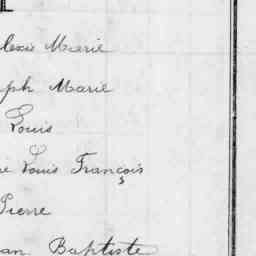 lexis Marie
eph Marie
Louis
re Louis François
Pierre
ean Baptiste